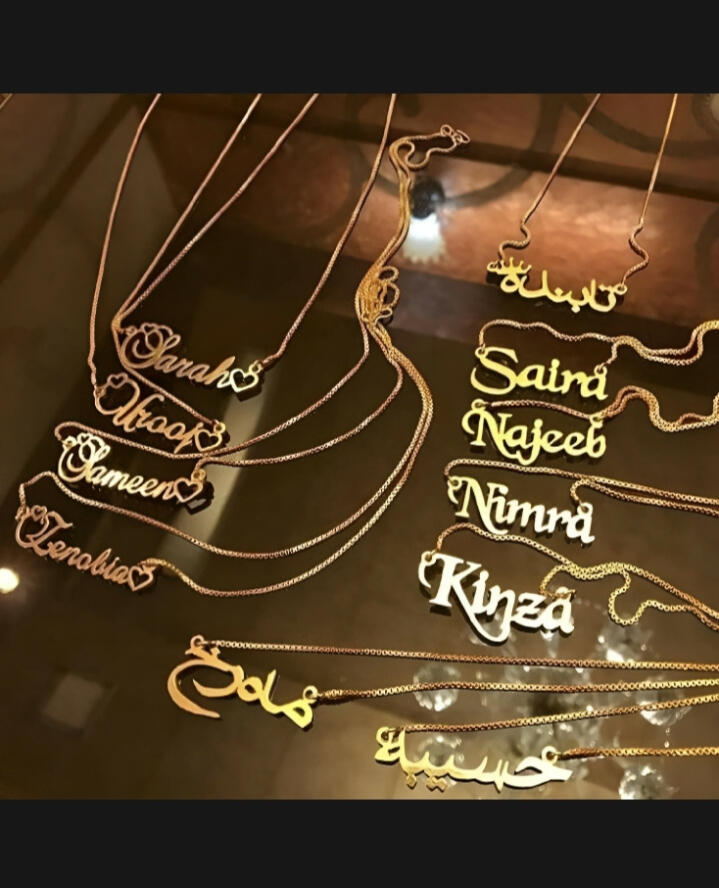 Sarah
Uroof
Sameen
Zenobia
تابندہ
Saira
Najeeb
Nimra
Kinza
ماہ رخ
حسیبہ